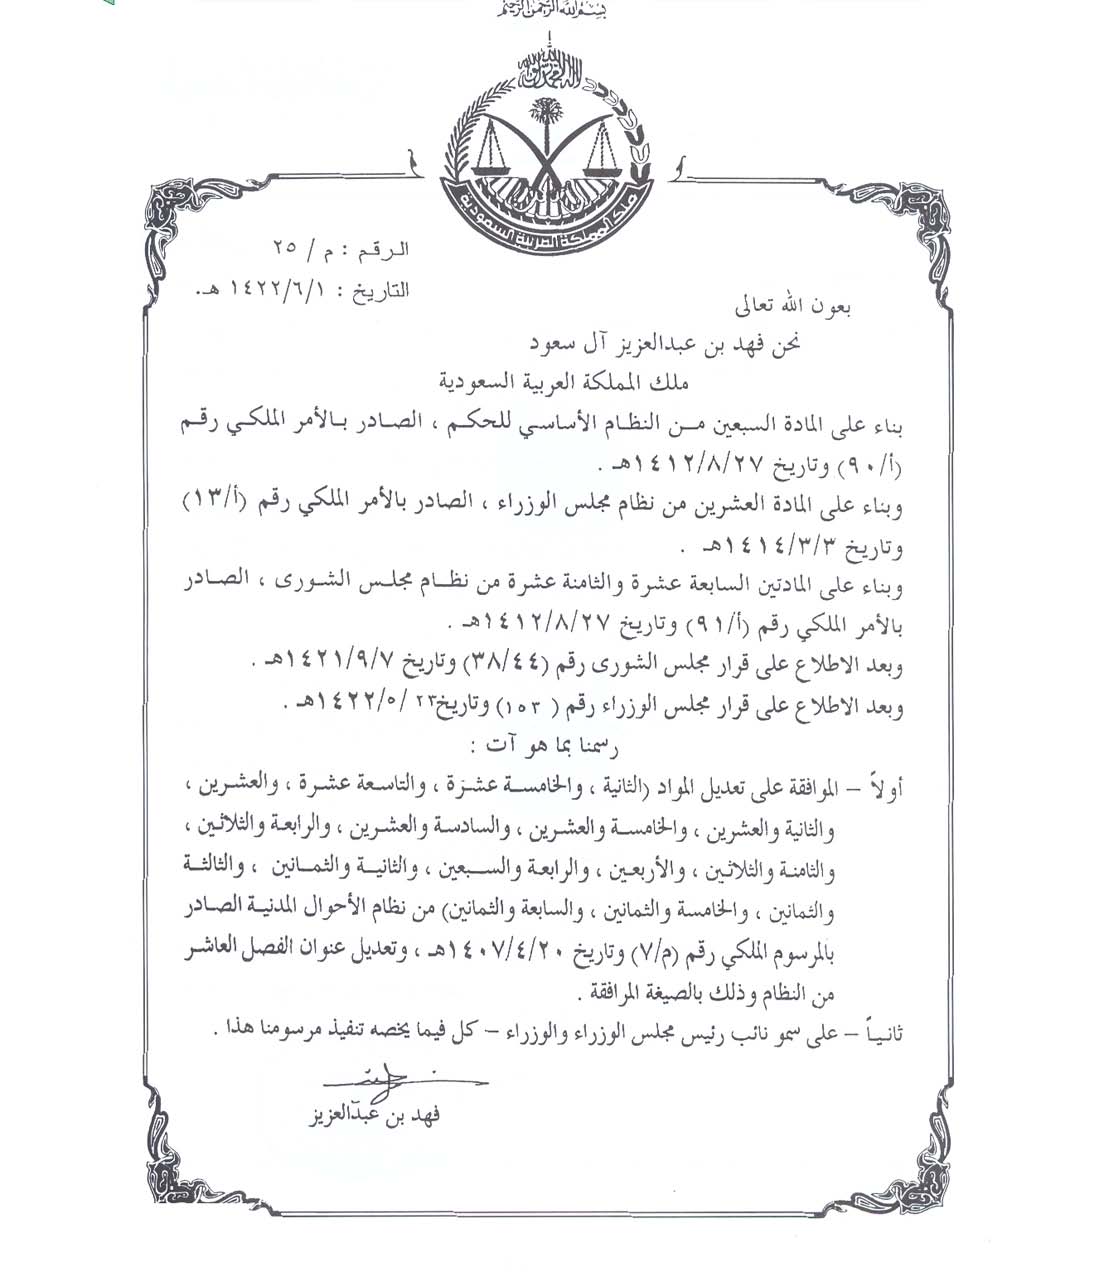 بسم الله الرحمن الرحيم
لا إله إلا الله محمد رسول الله
ملك المملكة العربية السعودية
الرقم : م / ٢٥
التاريخ : ١٤٢٢/٦/١ هـ.
بعون الله تعالى
نحن فهد بن عبدالعزيز آل سعود
ملك المملكة العربية السعودية
بناء على المادة السبعين من النظام الأساسي للحكم ، الصادر بالأمر الملكي رقم
(أ/٩٠) وتاريخ ١٤١٢/٨/٢٧هـ .
وبناء على المادة العشرين من نظام مجلس الوزراء ، الصادر بالأمر الملكي رقم (أ/١٣)
وتاريخ ١٤١٤/٣/٣هـ .
وبناء على المادتين السابعة عشرة والثامنة عشرة من نظام مجلس الشورى ، الصادر
بالأمر الملكي رقم (أ/٩١) وتاريخ ١٤١٢/٨/٢٧هـ .
وبعد الاطلاع على قرار مجلس الشورى رقم (٣٨/٤٤) وتاريخ ١٤٢١/٩/٧هـ .
وبعد الاطلاع على قرار مجلس الوزراء رقم ( ١٥٣) وتاريخ ٢٣ /١٤٢٢/٥هـ .
رسمنا بما هو آت :
أولاً – الموافقة على تعديل المواد (الثانية ، والخامسة عشرة ، والتاسعة عشرة ، والعشرين ،
والثانية والعشرين ، والخامسة والعشرين ، والسادسة والعشرين ، والرابعة والثلاثين ،
والثامنة والثلاثين ، والأربعين ، والرابعة والسبعين ، والثانية والثمانين ، والثالثة
والثمانين ، والخامسة والثمانين ، والسابعة والثمانين) من نظام الأحوال المدنية الصادر
بالمرسوم الملكي رقم (م/٧) وتاريخ ١٤٠٧/٤/٢٠هـ ، وتعديل عنوان الفصل العاشر
من النظام وذلك بالصيغة المرافقة .
ثانياً – على سمو نائب رئيس مجلس الوزراء والوزراء – كل فيما يخصه تنفيذ مرسومنا هذا .
فهد بن عبدالعزيز